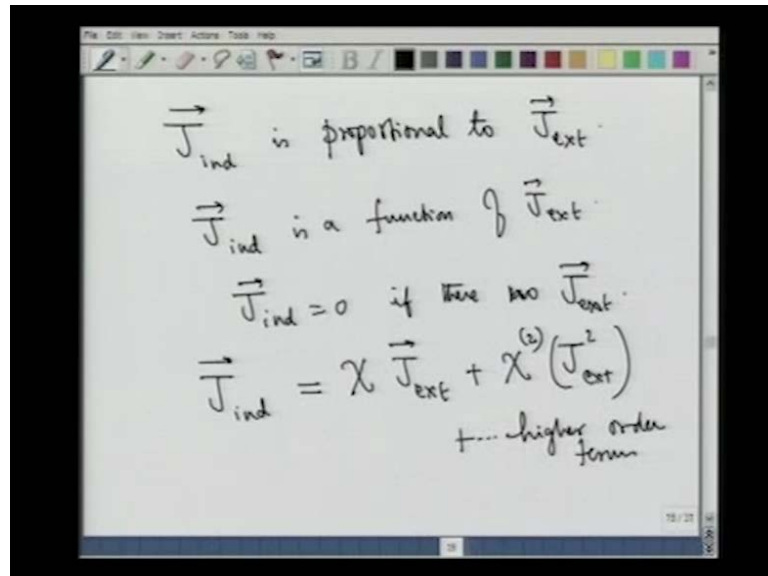 File Edit View Insert Actions Tools Help
B I
J⃗ind is proportional to J⃗ext.
J⃗ind is a function of J⃗ext.
J⃗ind = 0 if there no J⃗ext.
J⃗ind = χ J⃗ext + χ⁽²⁾ (J²ext)
+ ... higher order
terms
19